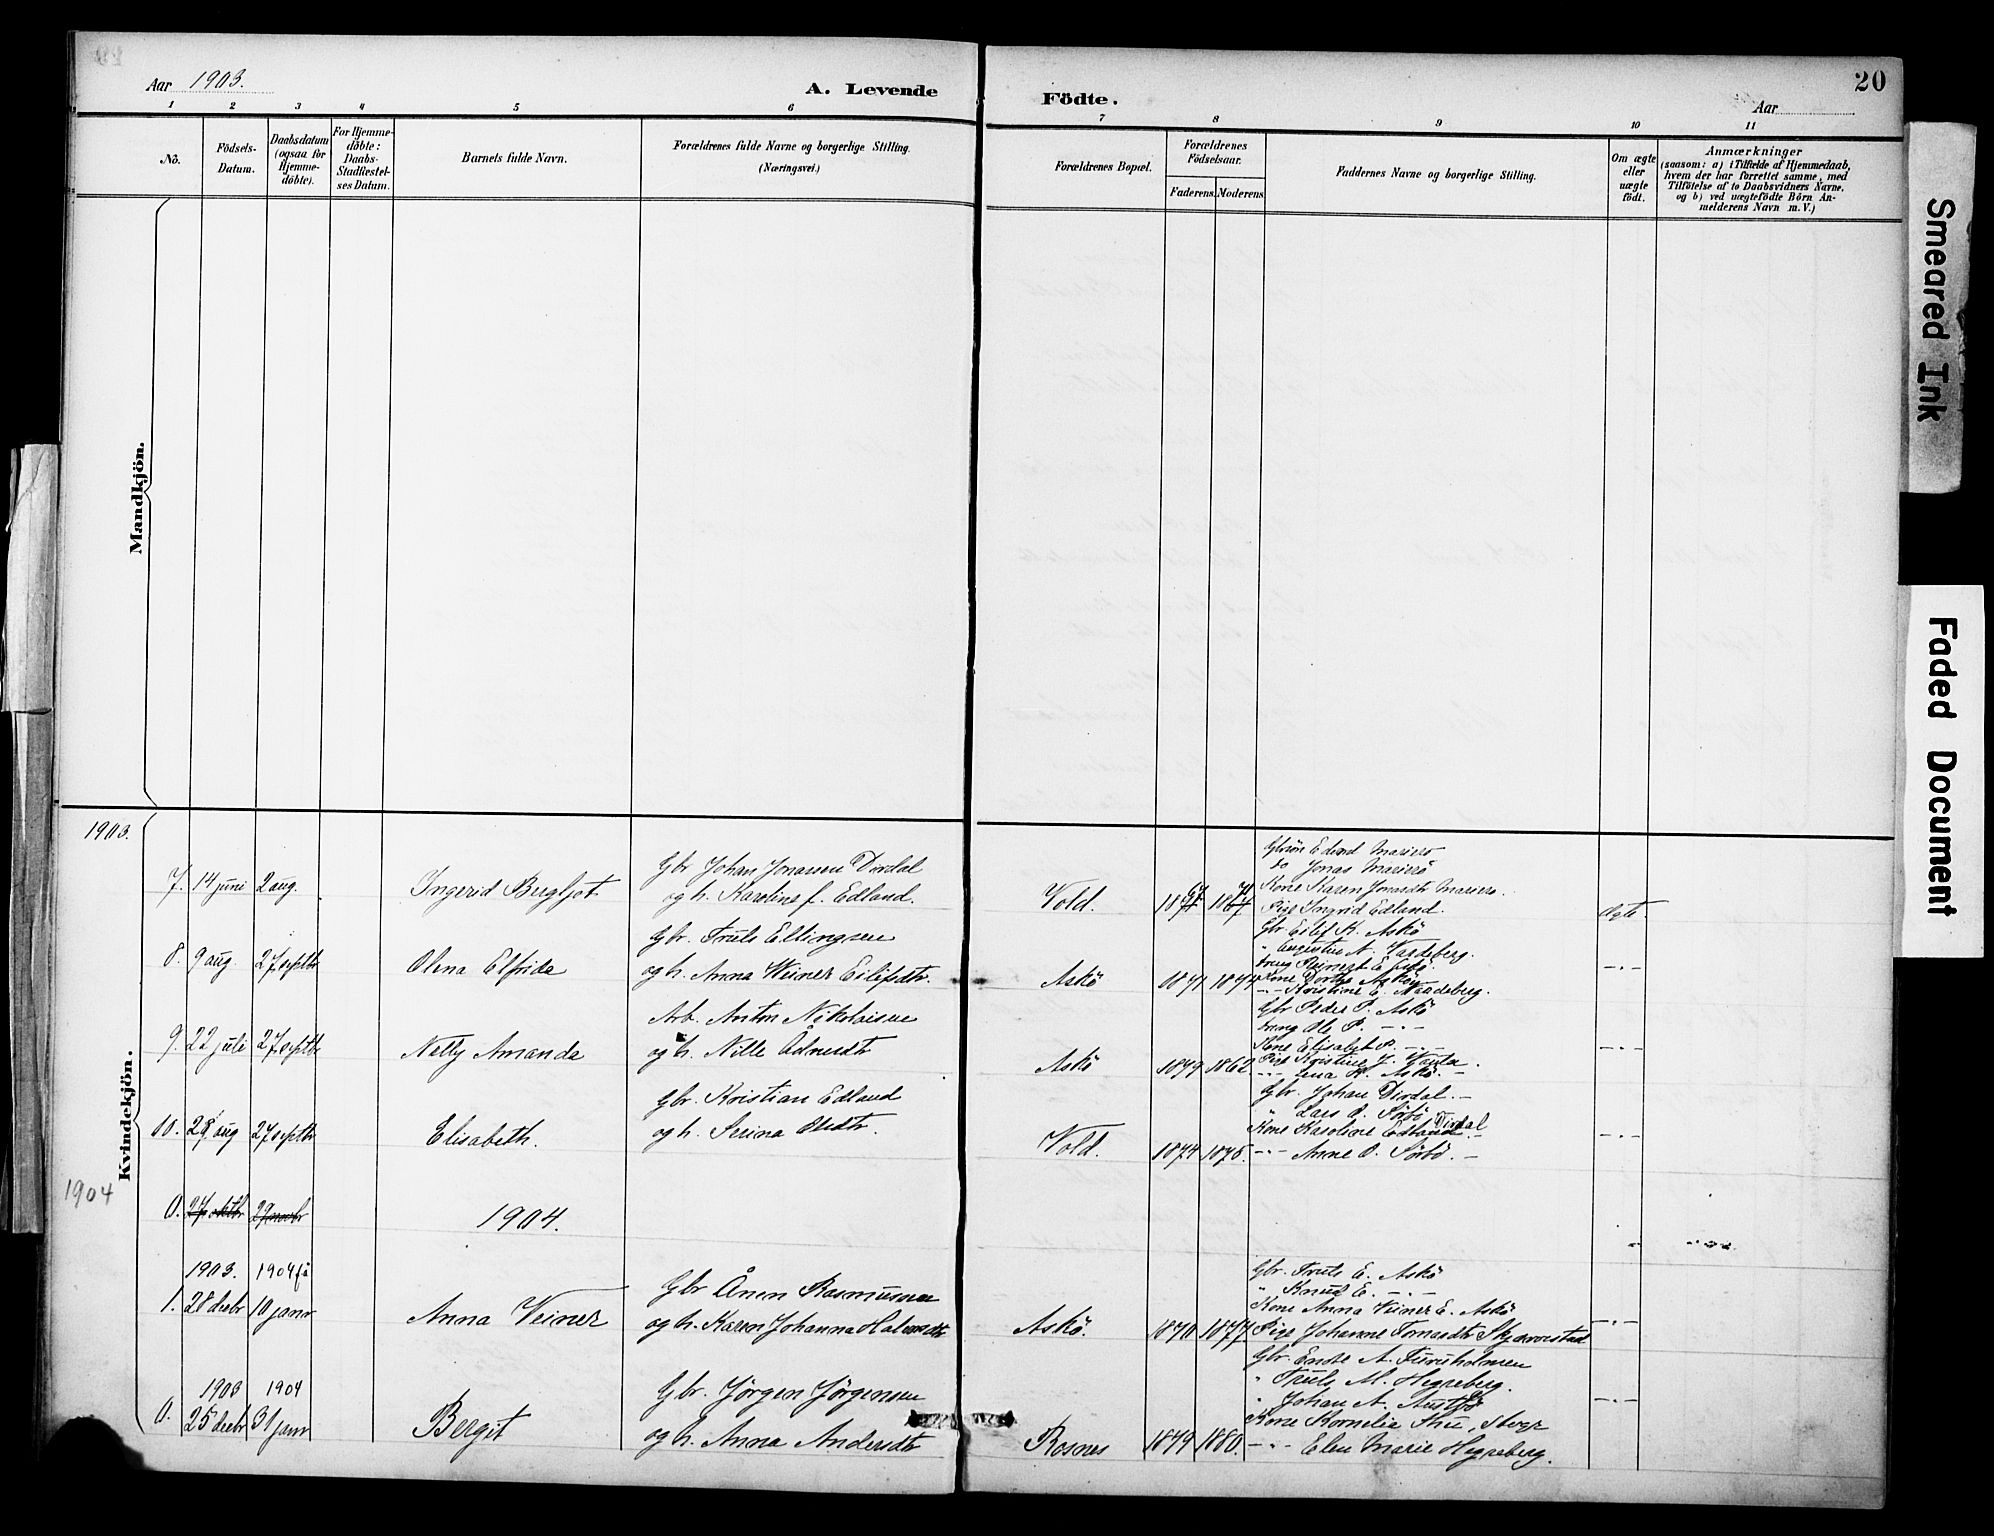 20
Aar 1903.
A. Levende
Födte.
Aar
1 2 3 4 5 6
7 8 9 10 11
No.
Födsels-
Datum.
Daabsdatum
(ogsaa for
Hjemme-
döbte).
For Hjemme-
döbte:
Daabs-
Stadfæstel-
ses Datum.
Barnets fulde Navn.
Forældrenes fulde Navne og borgerlige Stilling.
(Næringsvei.)
Forældrenes Bopæl.
Forældrenes
Födselsaar.
Faderens.
Moderens.
Faddernes Navne og borgerlige Stilling.
Om ægte
eller
uægte
födt.
Anmærkninger
(saasom: a) i Tilfælde af Hjemmedaab,
hvem der har forrettet samme, med
Tilföielse af to Daabsvidners Navne,
og b) ved uægtefödte Börn An-
melderens Navn m. V.)
Smeared Ink
Faded Document
Mandkjön.
Kvindekjön.
1903.
7. 14 juni 2 aug.
Ingerid Bergljot
Gbr Johan Jonassen Dirdal
og h. Karoline f. Edland.
Vold.
Edvard Mariero
do Jonas Mariero
Kone Karen Jonasdt Mariero.
Pige Ingrid Edland.
Ægte
8. 9 aug. 27 septbr
Olena Elfrida
Gbr. Truls Ellingsen
og h. Anna Weiner Eilifsdtr.
Askö
1871 1874
Gbr Eilif K. Askö
" Augustin A. Vaadeberg.
Kone Dorthe Askö
-"- Kristine E. Vaadeberg.
-"-
9. 22 juli 27 septbr
Nelly Amanda
Arb. Anton Nikolaisen
og h. Nille Ådnesdtr
Askö
1879 1862
Gbr Peder P. Askö
Ung Ole P. -"-
Kone Elisabet P. -"-
Pige Kristine J.
-"- Lina K. Askö. -
-"-
10. 28 aug 27 septbr
Elisabeth.
Gbr. Kristian Edland
og h. Serina Olsdtr.
Vold.
1874 1875.
Gbr. Johan Dirdal. -
" Lars O. Sörbö
Kone Karoline Edland Dirdal
-"- Anne O. Sörbö. -
-"-
1904
0. 27 oktbr 29 novbr
1904.
1903. 1904
1. 28 decbr 10 janr
Anna Veiner
Gbr Ånen Rasmussen
og h. Karen Johanna
Askö.
1870 1877
Gbr. Truls E. Askö
" Knud E. -"-
Kone Anna Weiner E. Askö
Pige Johanne Tomasdtr
-"-
1903 1904
0. 25 decbr 31 janr
Bergit
Gbr. Jörgen Jörgensen
og h. Anna Andersdtr
Rosnes
1879 1880.
Gbr. Endre A. Furuholmen
" Truls M. Hegreberg.
" Johan A. Austbö
Kone Kornelia
-"- Elen Marie Hegreberg.
-"-